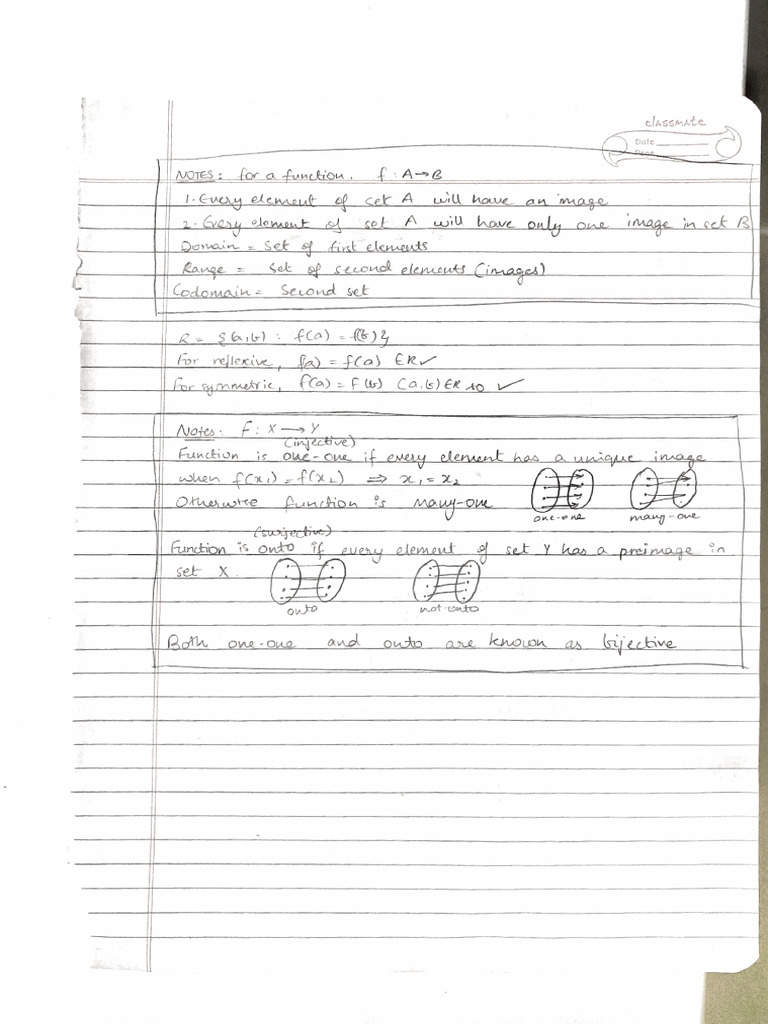 classmate
Date
Page
NOTES: for a function, f : A→B
1. Every element of set A will have an image
2. Every element of set A will have only one image in set B
Domain = Set of first elements
Range = Set of second elements (images)
Codomain = Second set
R = {(a,b) : f(a) = f(b)}
For reflexive, f(a) = f(a) ∈R ✓
For symmetric, f(a) = f(b) (a,b) ∈R ✓
Notes: f : X ⟶ Y
(injective)
Function is one-one if every element has a unique image
when f(x₁) = f(x₂) ⇒ x₁ = x₂
Otherwise function is many-one
one-one many-one
(surjective)
Function is onto if every element of set Y has a preimage in
set X.
onto not-onto
Both one-one and onto are known as bijective